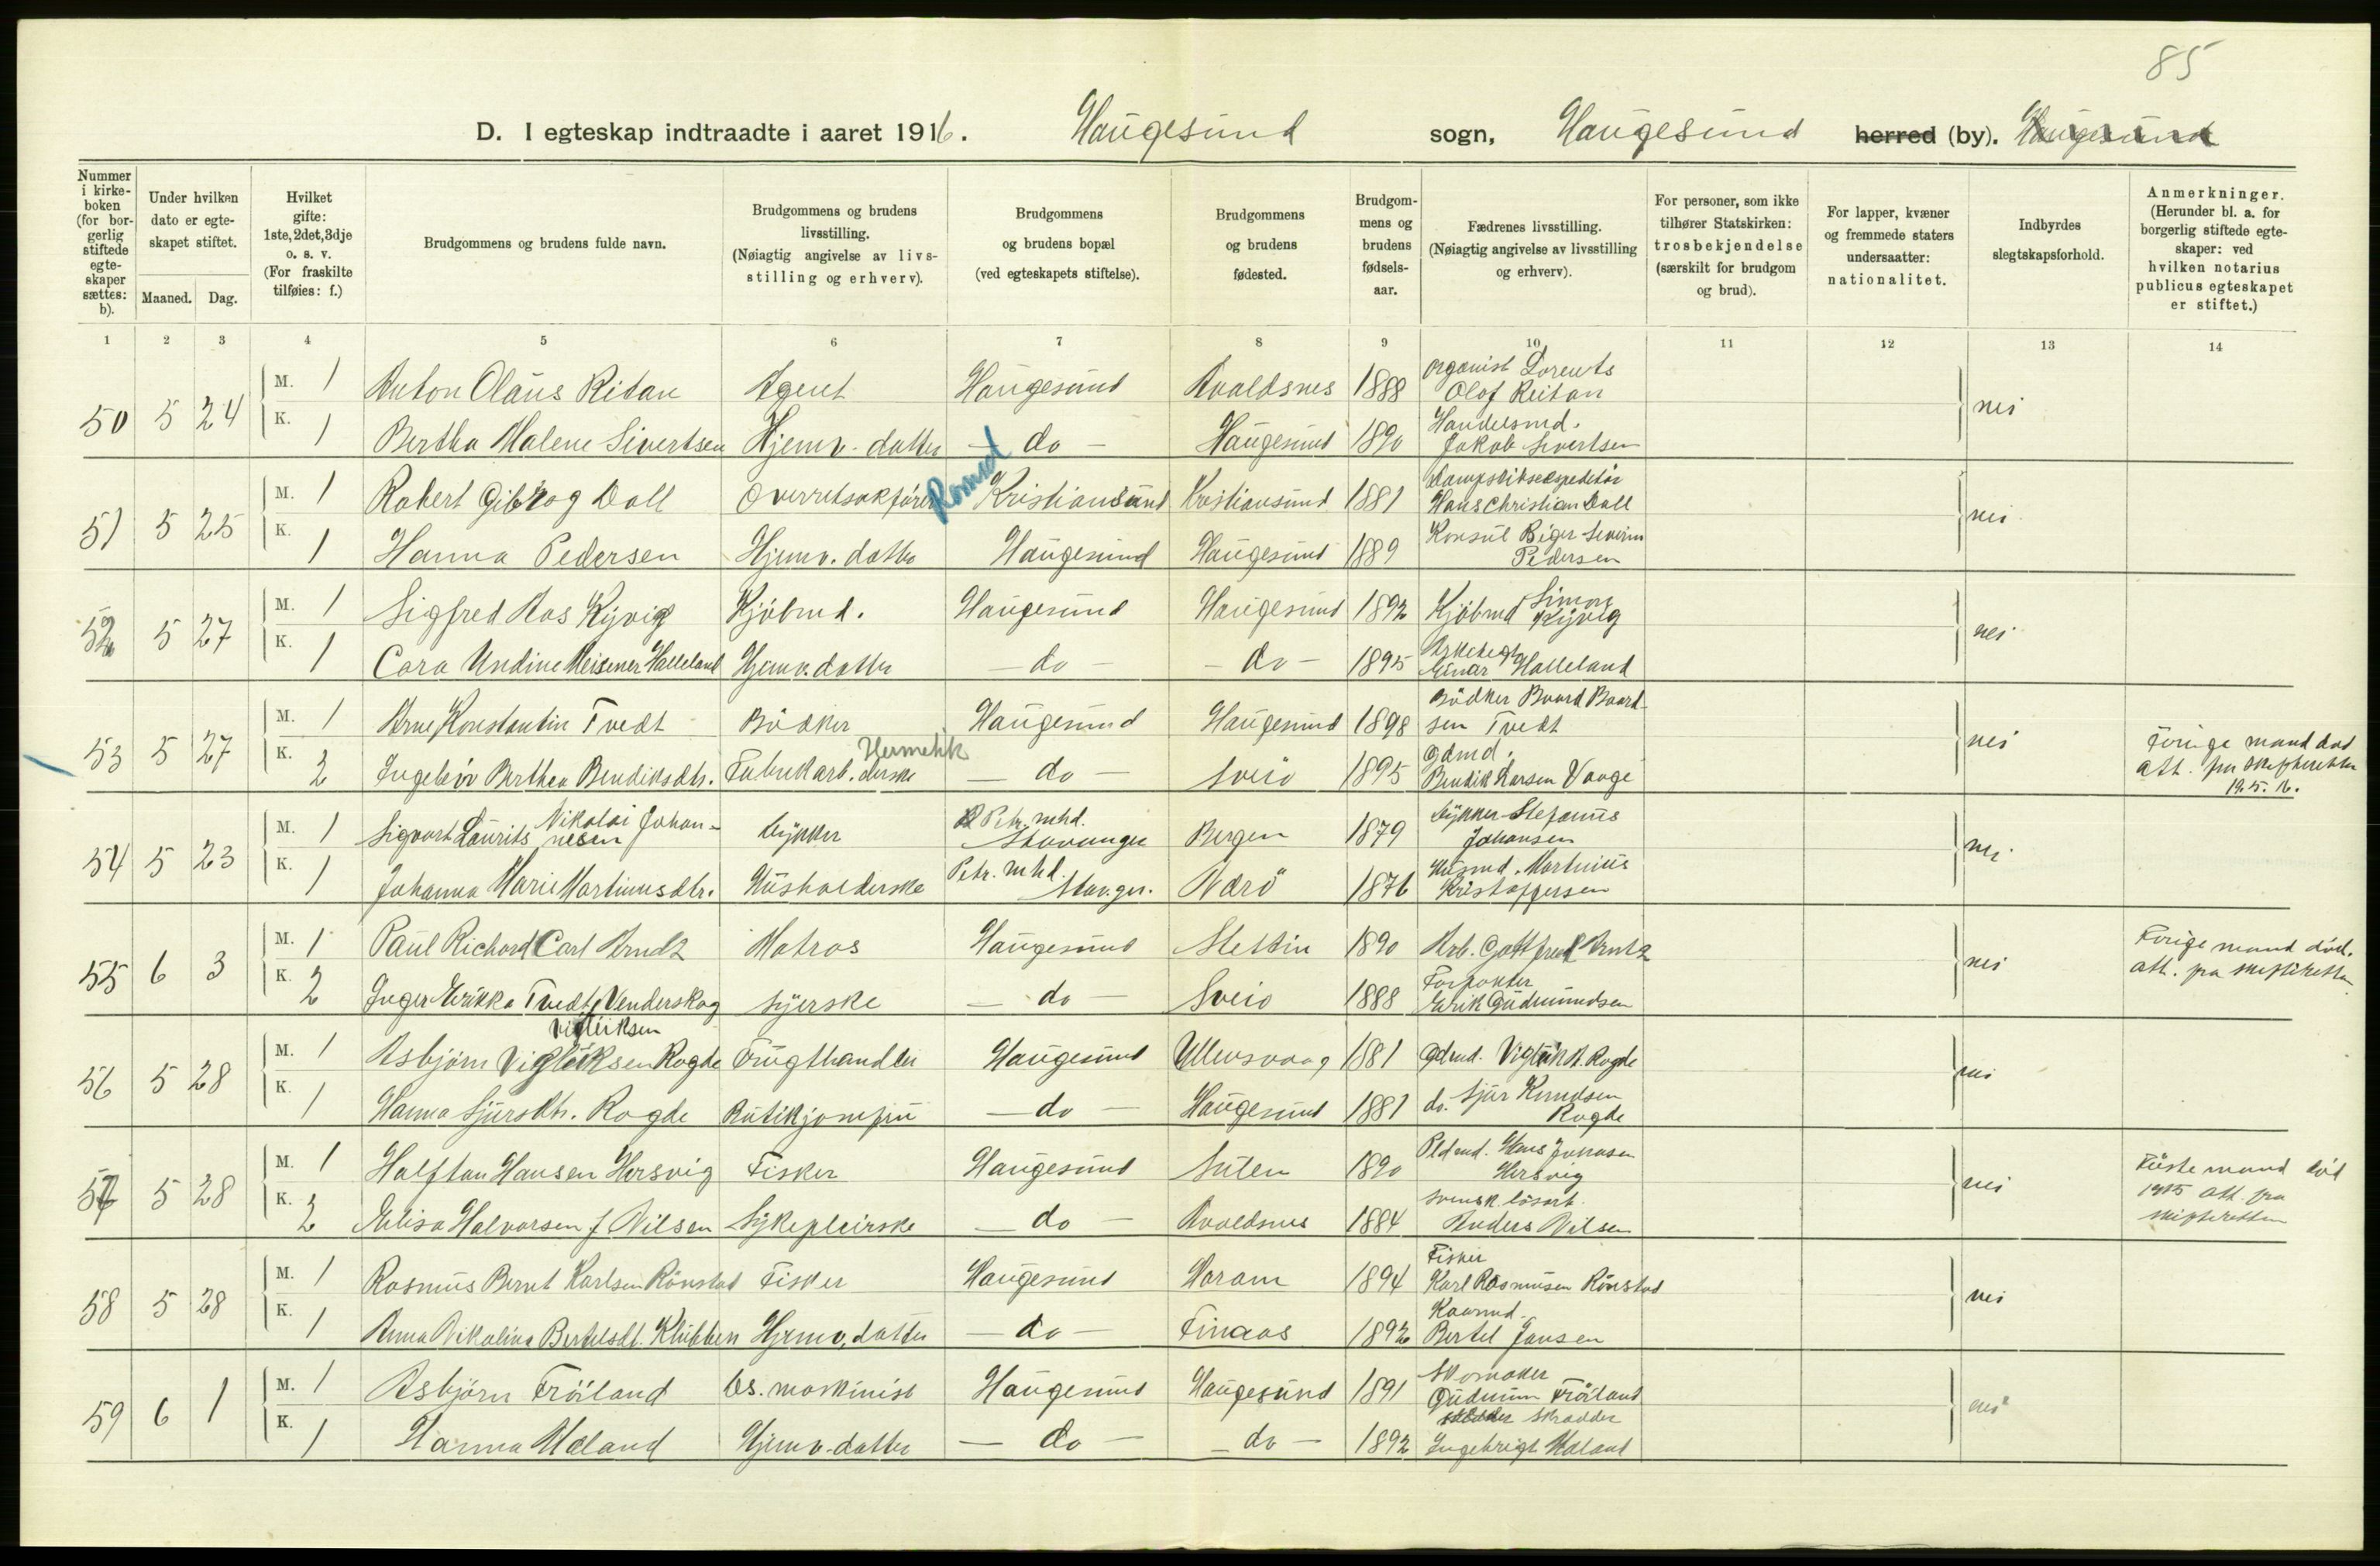 85
D. I egteskap indtraadte i aaret 1916. Haugesund sogn, Haugesund herred (by). Haugesund
Nummer i kirkeboken (for borgerlig stiftede egteskaper sættes: b).
Under hvilken dato er egteskapet stiftet.
Maaned. Dag.
Hvilket gifte: 1ste, 2det, 3dje o. s. v. (For fraskilte tilføies: f.)
Brudgommens og brudens fulde navn.
Brudgommens og brudens livsstilling. (Nøiagtig angivelse av livsstilling og erhverv).
Brudgommens og brudens bopæl (ved egteskapets stiftelse).
Brudgommens og brudens fødested.
Brudgommens og brudens fødselsaar.
Fædrenes livsstilling. (Nøiagtig angivelse av livsstilling og erhverv).
For personer, som ikke tilhører Statskirken: trosbekjendelse (særskilt for brudgom og brud).
For lapper, kvæner og fremmede staters undersaatter: nationalitet.
Indbyrdes slegtskapsforhold.
Anmerkninger. (Herunder bl. a. for borgerlig stiftede egteskaper: ved hvilken notarius publicus egteskapet er stiftet.)
1 2 3 4 5 6 7 8 9 10 11 12 13 14
50 5 24 M. 1 Anton Olaus Reitan Agent Haugesund Avaldsnes 1888 Organist Lorents Olof Reitan nei
K. 1 Bertha Malene Sivertsen Hjemv. datter – do – Haugesund 1890 Handelsmd. Jakob Sivertsen
51 5 25 M. 1 Robert Doll Overretsakfører Romsd Kristiansund Kristiansund 1881 Dampskibsekspeditör Hans Christian Doll nei
K. 1 Hanna Pedersen Hjemv. datter Haugesund Haugesund 1889 Konsul Birger Severin Pedersen
52 5 27 M. 1 Sigfred Aas Kyvig Kjöbmd. Haugesund Haugesund 1892 Kjöbmd Simon Kyvig nei
K. 1 Cara Undine Meisener Halleland Hjemv. datter – do – – do – 1895 Einar Halleland
53 5 27 M. 1 Arne Konstantin Tvedt Bödker Haugesund Haugesund 1898 Bödker Baard Baardsen Tvedt nei
K. 2 Ingebör Berthea Bendiksdtr. Fabrikarb.derske Hermetik – do – Sveio 1895 Gdmd. Bendik Larsen Vaage Forrige mand död att. fra skifteretten 19.5.16.
54 5 23 M. 1 Sigvart Laurits Nikolai Johannesen Cykker Petr. mhd. Stavanger Bergen 1879 Cykker Stefanus Johansen nei
K. 1 Johanna Marie Martinusdtr. Husholderske Petr. mhd. Stav.ger. Nærö 1876 Husmd. Martinius Kristoffersen
55 6 3 M. 1 Paul Richard Carl Arndt Matros Haugesund Stettin 1890 Arb. Gottfried Arntz nei Forige mand död. att. fra skifteretten
K. 2 Inger Erikka Tvedt f. Venderskog Syerske – do – Sveio 1888 Forpakter Erik Gudmundsen
56 5 28 M. 1 Asbjörn Vigleiksen Rogde Frugthandler Haugesund Ullensvang 1881 Gdmd. Vigleik A. Rogde nei
K. 1 Hanna Sjursdtr. Rogde Butikjomfru – do – Haugesund 1881 do. Sjur Knudsen Rogde
57 5 28 M. 1 Halftan Hansen Hersvig Fisker Haugesund Sulen 1890 Pldmd. Hans Johnsen Hersvig nei Förste mand död 1915 att. fra skifteretten
K. 2 Elisa Halvorsen f Nilsen Sykepleirske – do – Avaldsnes 1884 Svensk lösarb. Anders Nilsen
58 5 28 M. 1 Rasmus Bernt Karlsen Rönstad Fisker Haugesund Haram 1894 Fisker Karl Rasmusen Rönstad nei
K. 1 Anna Nikolina Bertelsdt. Klubben Hjemv. datter – do – Finaas 1892 Kaarmd. Bertel Jansen
59 6 1 M. 1 Asbjörn Fröiland Es. maskinist Haugesund Haugesund 1891 Skomaker Gudmun Fröiland nei
K. 1 Hanna Haland Hjemv. datter – do – – do – 1892 Skrædder Ingebrigt Haland